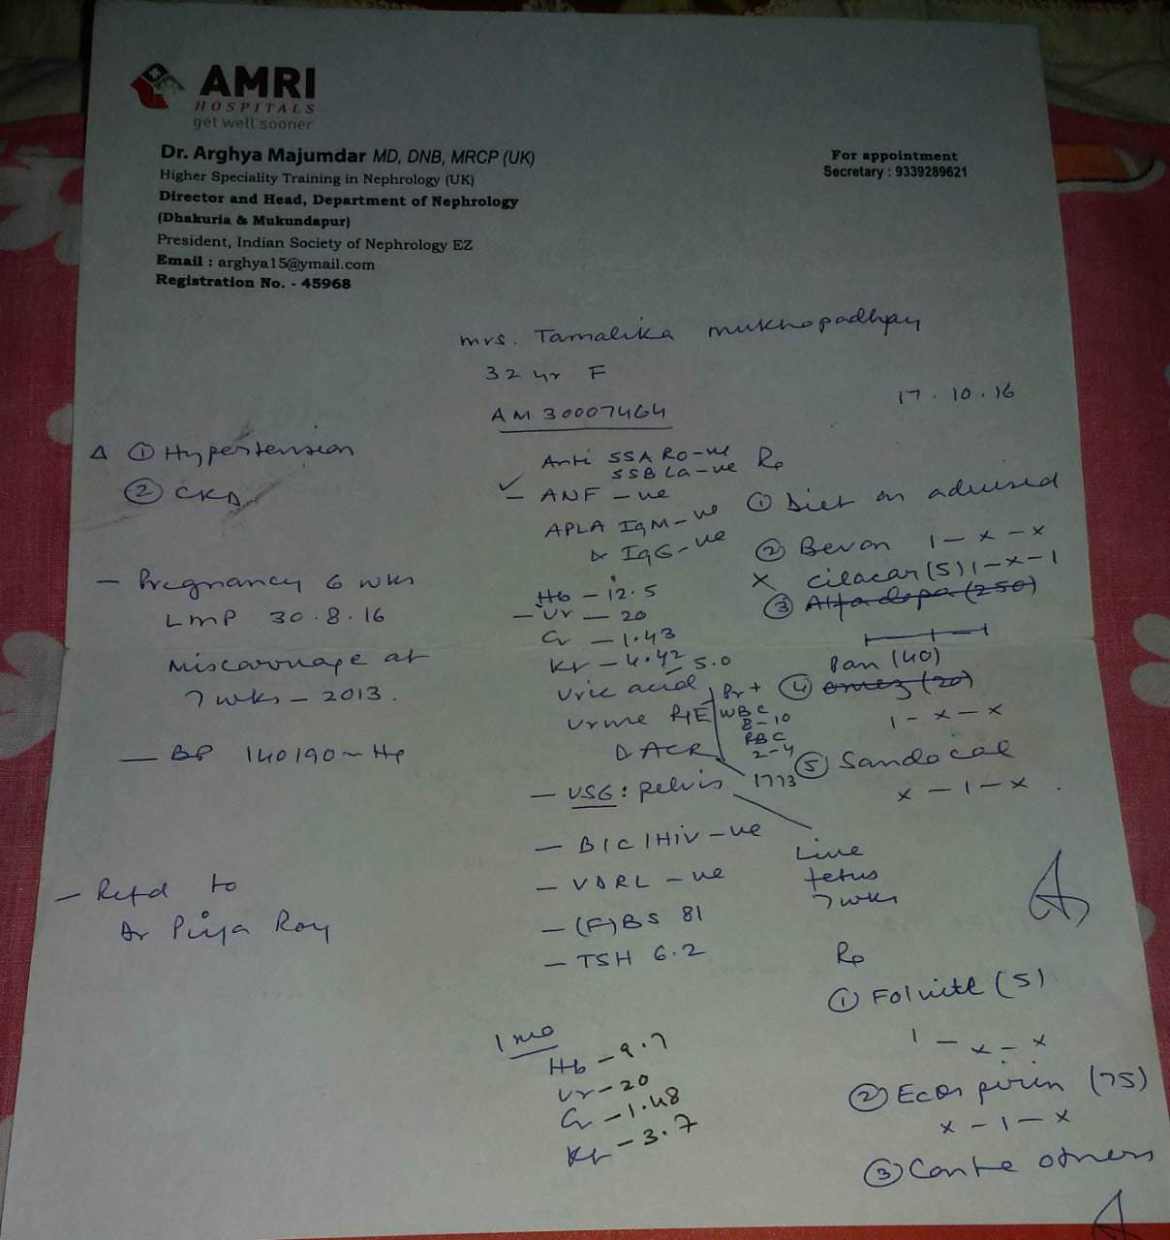 AMRI
HOSPITALS
get well sooner
Dr. Arghya Majumdar MD, DNB, MRCP (UK)
Higher Speciality Training in Nephrology (UK)
Director and Head, Department of Nephrology
(Dhakuria & Mukundapur)
President, Indian Society of Nephrology EZ
Email : arghya15@ymail.com
Registration No. - 45968
For appointment
Secretary : 9339289621
mrs. Tamalika mukhopadhyay
32 yr F
AM30007464
17.10.16
Δ ① Hypertension
② CKD
- Pregnancy 6 wks
LMP 30.8.16
Miscarriage at
7 wks - 2013.
- BP 140/90 mmHg
- Refd to
Dr Piya Roy
Anti SSA Ro -ve
SSB La -ve
- ANF -ve
APLA IgM -ve
& IgG -ve
Hb - 12.5
- Ur - 20
Cr - 1.43
K+ - 4.42
Uric acid - 5.0
Urine R/E Pr +
WBC
8-10
RBC
2-4
ACR
1773
- USG : pelvis
Live
fetus
7 wks
- B/C/HIV -ve
- VDRL -ve
- (F)BS 81
- TSH 6.2
1 mo
Hb - 9.7
Ur - 20
Cr - 1.48
K+ - 3.7
Rp
① Diet as advised
② Bevon 1 - x - x
x Cilacar (5) 1 - x - 1
③ Alfadopa (250)
Pan (40)
④ Omez (20)
1 - x - x
⑤ Sandocal
x - 1 - x
Rp
① Folvite (5)
1 - x - x
② Ecospirin (75)
x - 1 - x
③ Conte others